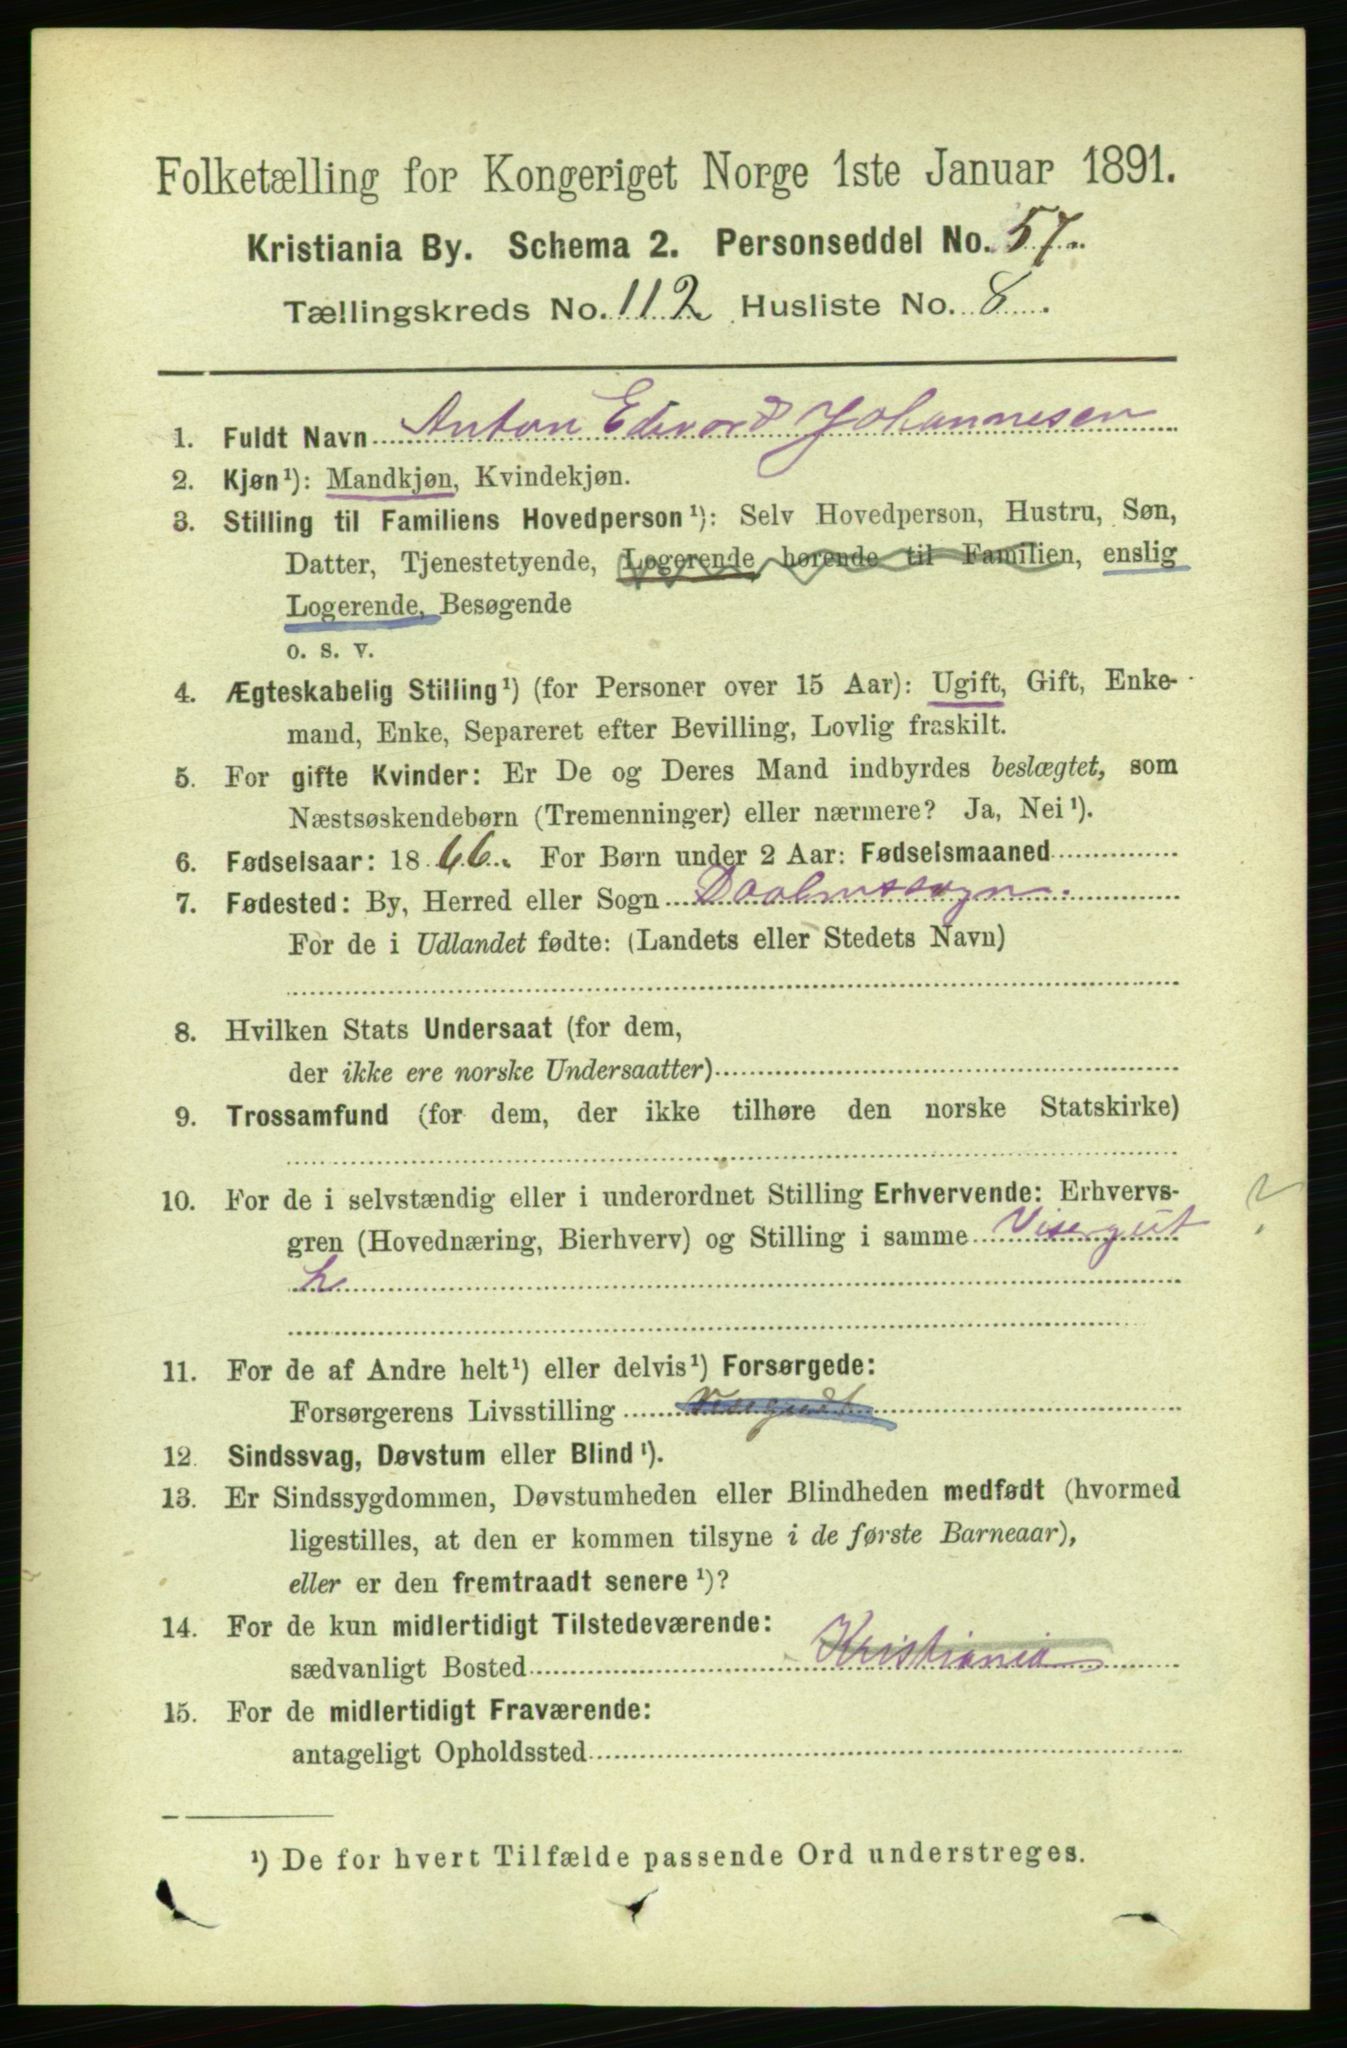 Folketælling for Kongeriget Norge 1ste Januar 1891.
Kristiania By. Schema 2. Personseddel No. 57.
Tællingskreds No. 112 Husliste No. 8.
1. Fuldt Navn Anton Edvard Johannesen
2. Kjøn¹): Mandkjøn, Kvindekjøn.
3. Stilling til Familiens Hovedperson¹): Selv Hovedperson, Hustru, Søn,
Datter, Tjenestetyende, Logerende hørende til Familien, enslig
Logerende, Besøgende
o. s. v.
4. Ægteskabelig Stilling¹) (for Personer over 15 Aar): Ugift, Gift, Enke-
mand, Enke, Separeret efter Bevilling, Lovlig fraskilt.
5. For gifte Kvinder: Er De og Deres Mand indbyrdes beslægtet, som
Næstsøskendebørn (Tremenninger) eller nærmere? Ja, Nei¹).
6. Fødselsaar: 1866. For Børn under 2 Aar: Fødselsmaaned
7. Fødested: By, Herred eller Sogn
For de i Udlandet fødte: (Landets eller Stedets Navn)
8. Hvilken Stats Undersaat (for dem,
der ikke ere norske Undersaatter)
9. Trossamfund (for dem, der ikke tilhøre den norske Statskirke)
10. For de i selvstændig eller i underordnet Stilling Erhvervende: Erhvervs-
gren (Hovednæring, Bierhverv) og Stilling i samme Visergut
h
?
11. For de af Andre helt¹) eller delvis¹) Forsørgede:
Forsørgerens Livsstilling
12. Sindssvag, Døvstum eller Blind¹).
13. Er Sindssygdommen, Døvstumheden eller Blindheden medfødt (hvormed
ligestilles, at den er kommen tilsyne i de første Barneaar),
eller er den fremtraadt senere¹)?
14. For de kun midlertidigt Tilstedeværende:
sædvanligt Bosted Kristiania
15. For de midlertidigt Fraværende:
antageligt Opholdssted
¹) De for hvert Tilfælde passende Ord understreges.